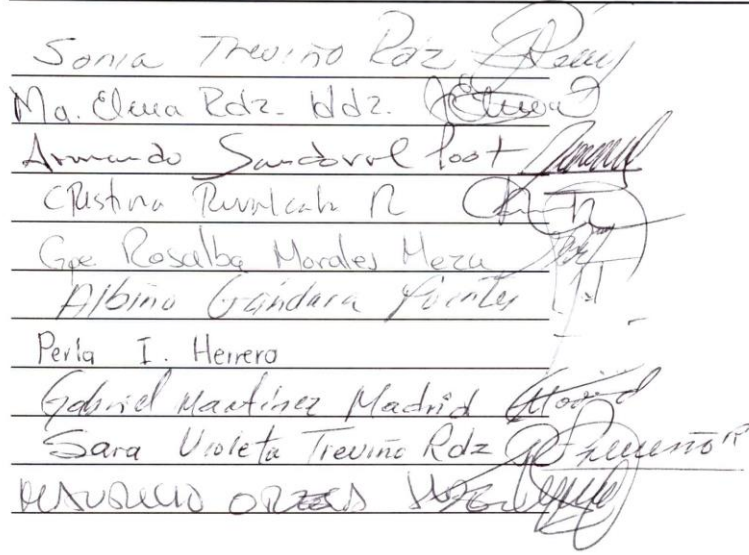 Sonia Treviño Rdz
Ma. Elena Rdz. Hdz.
Armando Sandoval Poot
Cristina Ruvalcaba R
Gpe. Rosalba Morales Meza
Albino Gándara Fuentes
Perla I. Herrero
Gabriel Martínez Madrid
Sara Violeta Treviño Rdz
Mauricio